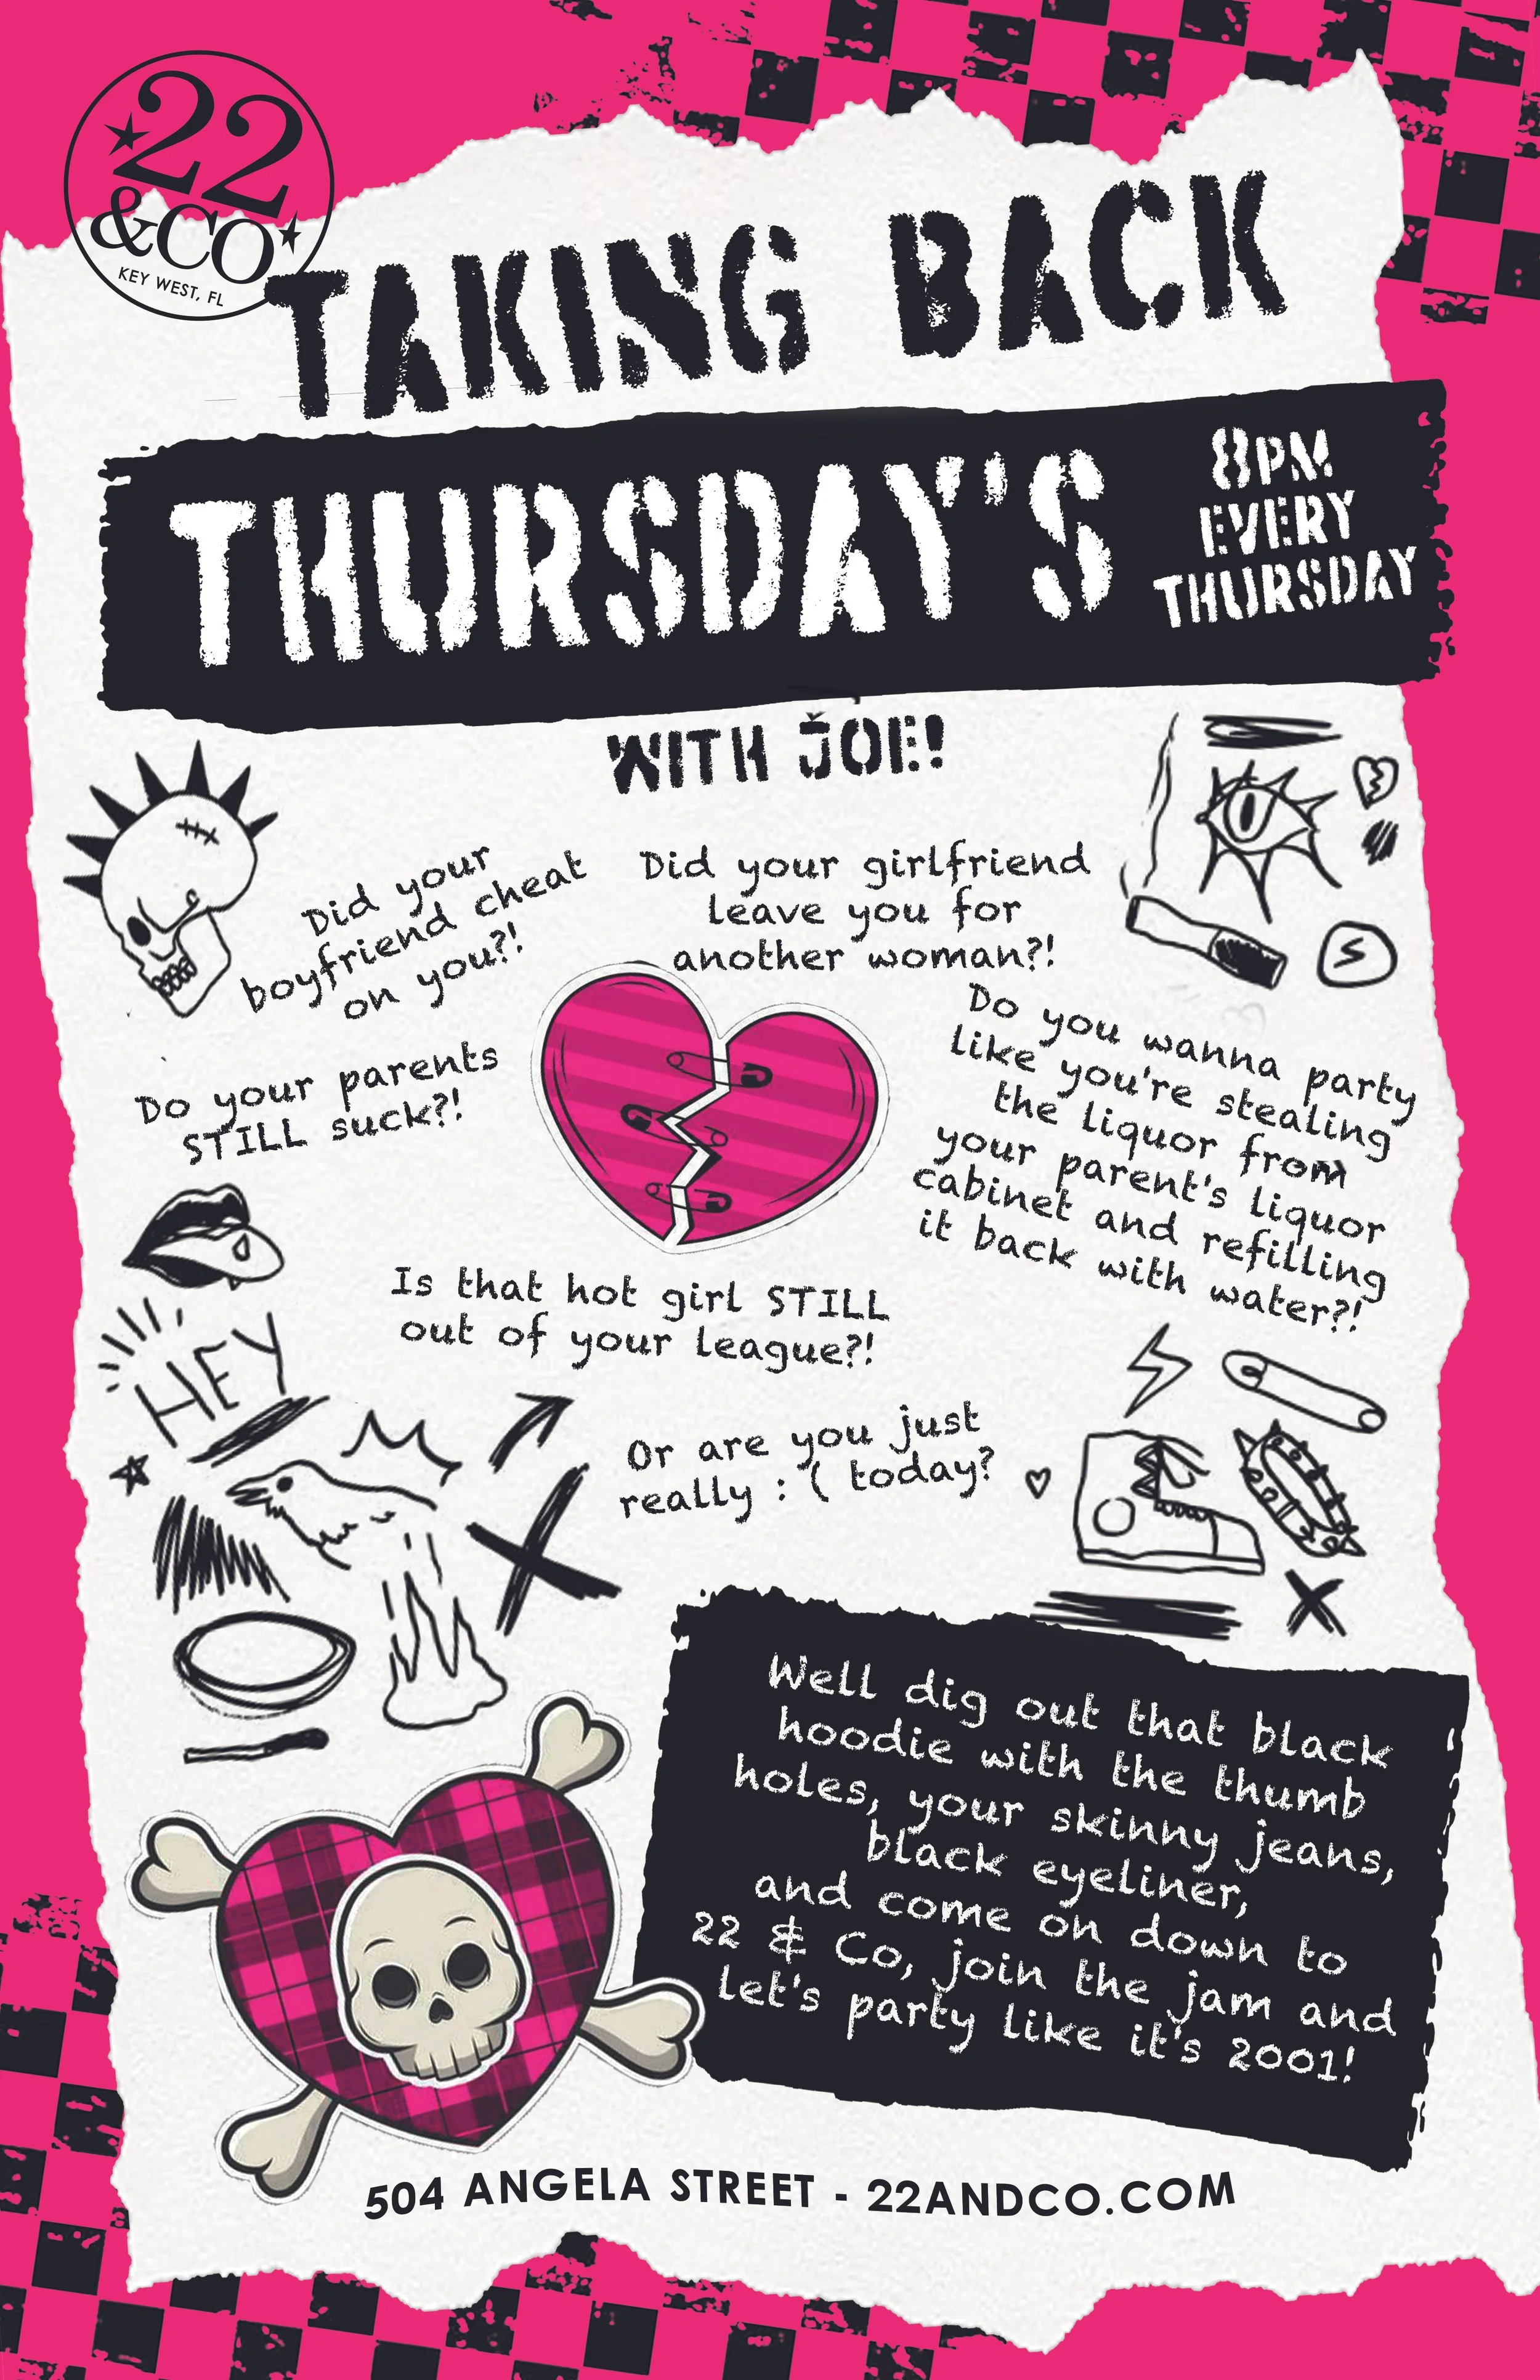 22
&CO
KEY WEST, FL
TAKING BACK
THURSDAY'S
8PM
EVERY
THURSDAY
WITH JOE!
Did your
boyfriend cheat
on you?!
Did your girlfriend
leave you for
another woman?!
Do your parents
STILL suck?!
Do you wanna party
like you're stealing
the liquor from
your parent's liquor
cabinet and refilling
it back with water?!
Is that hot girl STILL
out of your league?!
HEY
Or are you just
really : ( today?
Well dig out that black
hoodie with the thumb
holes, your skinny jeans,
black eyeliner,
and come on down to
22 & Co, join the jam and
let's party like it's 2001!
504 ANGELA STREET - 22ANDCO.COM